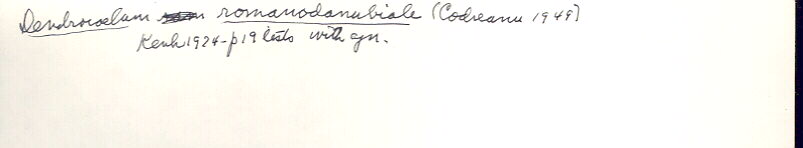 Dendrocoelum romanodanubiale (Codreanu 1949)
Kenk 1974 - p 19 lists with qn.